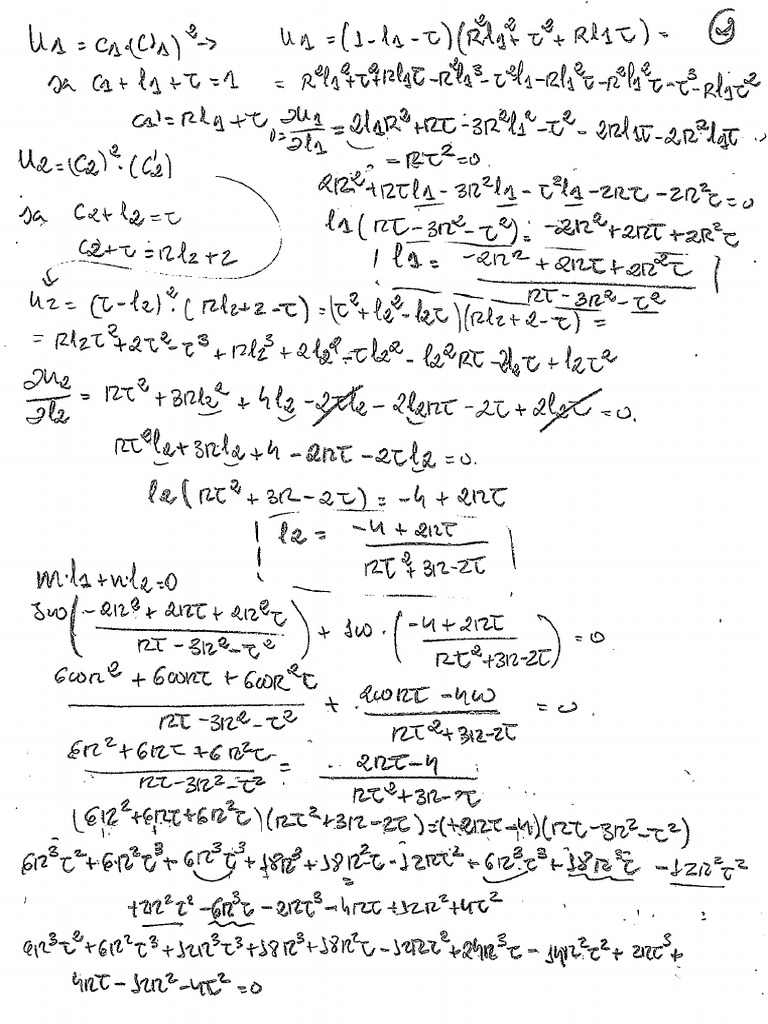 ②
U1 = C1·(C'1)² → U1 = (1-l1-τ)(R²l1²+τ²+Rl1τ) =
за C1+l1+τ=1 = R²l1²+τ²+Rl1τ-R²l1³-τ²l1-Rl1²τ-R²l1²τ-τ³-Rl1τ²
C1'=Rl1+τ, ∂U1/∂l1 = 2l1R²+Rτ-3R²l1²-τ²-2Rl1τ-2R²l1τ-
-Rτ²=0
U2=(C2)²·(C'2)
2R²+Rτl1-3R²l1-τ²l1-2Rτ-2R²τ=0
за C2+l2=τ
l1(Rτ-3R²-τ²)=-2R²+2Rτ+2R²τ
C2+τ=Rl2+2
l1 = (-2R²+2Rτ+2R²τ)/(Rτ-3R²-τ²)
U2=(τ-l2)²·(Rl2+2-τ)=(τ²+l2²-l2τ)(Rl2+2-τ)=
=Rl2τ²+2τ²-τ³+Rl2³+2l2²-τl2²-l2²Rτ-2l2τ+l2τ²
∂U2/∂l2 = Rτ²+3Rl2²+4l2-2τl2-2l2Rτ-2τ+2l2τ=0.
Rτ²l2+3Rl2+4-2Rτ-2τl2=0.
l2(Rτ²+3R-2τ)=-4+2Rτ
l2 = (-4+2Rτ)/(Rτ²+3R-2τ)
m·l1+n·l2=0
3ω((-2R²+2Rτ+2R²τ)/(Rτ-3R²-τ²)) + 1ω·((-4+2Rτ)/(Rτ²+3R-2τ))=0
(6ωR²+6ωRτ+6ωR²τ)/(Rτ-3R²-τ²) + (2ωRτ-4ω)/(Rτ²+3R-2τ) = 0.
(6R²+6Rτ+6R²τ)/(Rτ-3R²-τ²) = (2Rτ-4)/(Rτ²+3R-2τ)
(6R²+6Rτ+6R²τ)(Rτ²+3R-2τ)=(+2Rτ-4)(Rτ-3R²-τ²)
6R³τ²+6R²τ³+6R³τ³+18R³+18R²τ-12Rτ²+6R³τ³+18R³τ-12R²τ²
+2R²τ²-6R³τ-2Rτ³-4Rτ+12R²+4τ²
6R³τ²+6R²τ³+12R³τ³+18R³+18R²τ-12Rτ²+24R³τ-14R²τ²+2Rτ³+
4Rτ-12R²-4τ²=0